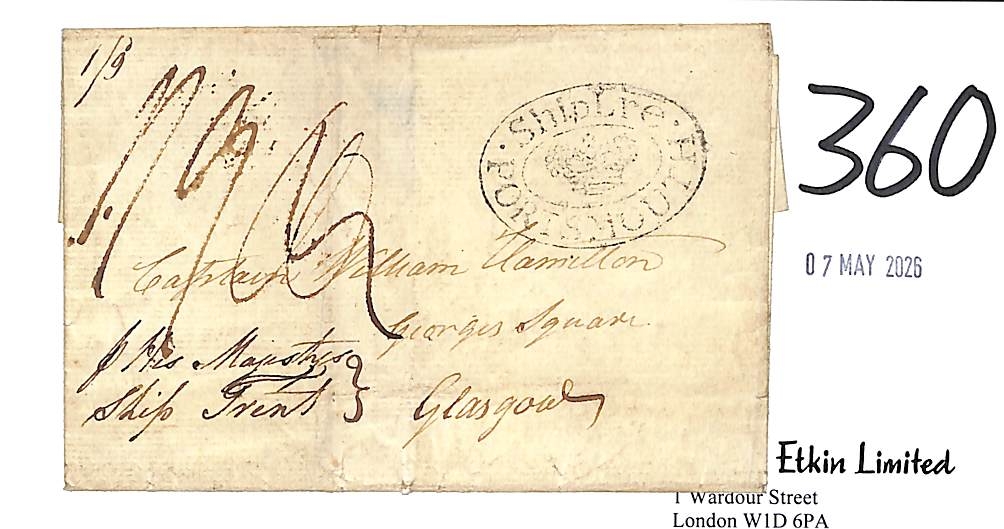 1/9
Ship Lre
PORTSMOUTH
Captain William Hamilton
Georges Square
Glasgow
p His Majestys
Ship Trent
360
07 MAY 2026
Etkin Limited
1 Wardour Street
London W1D 6PA